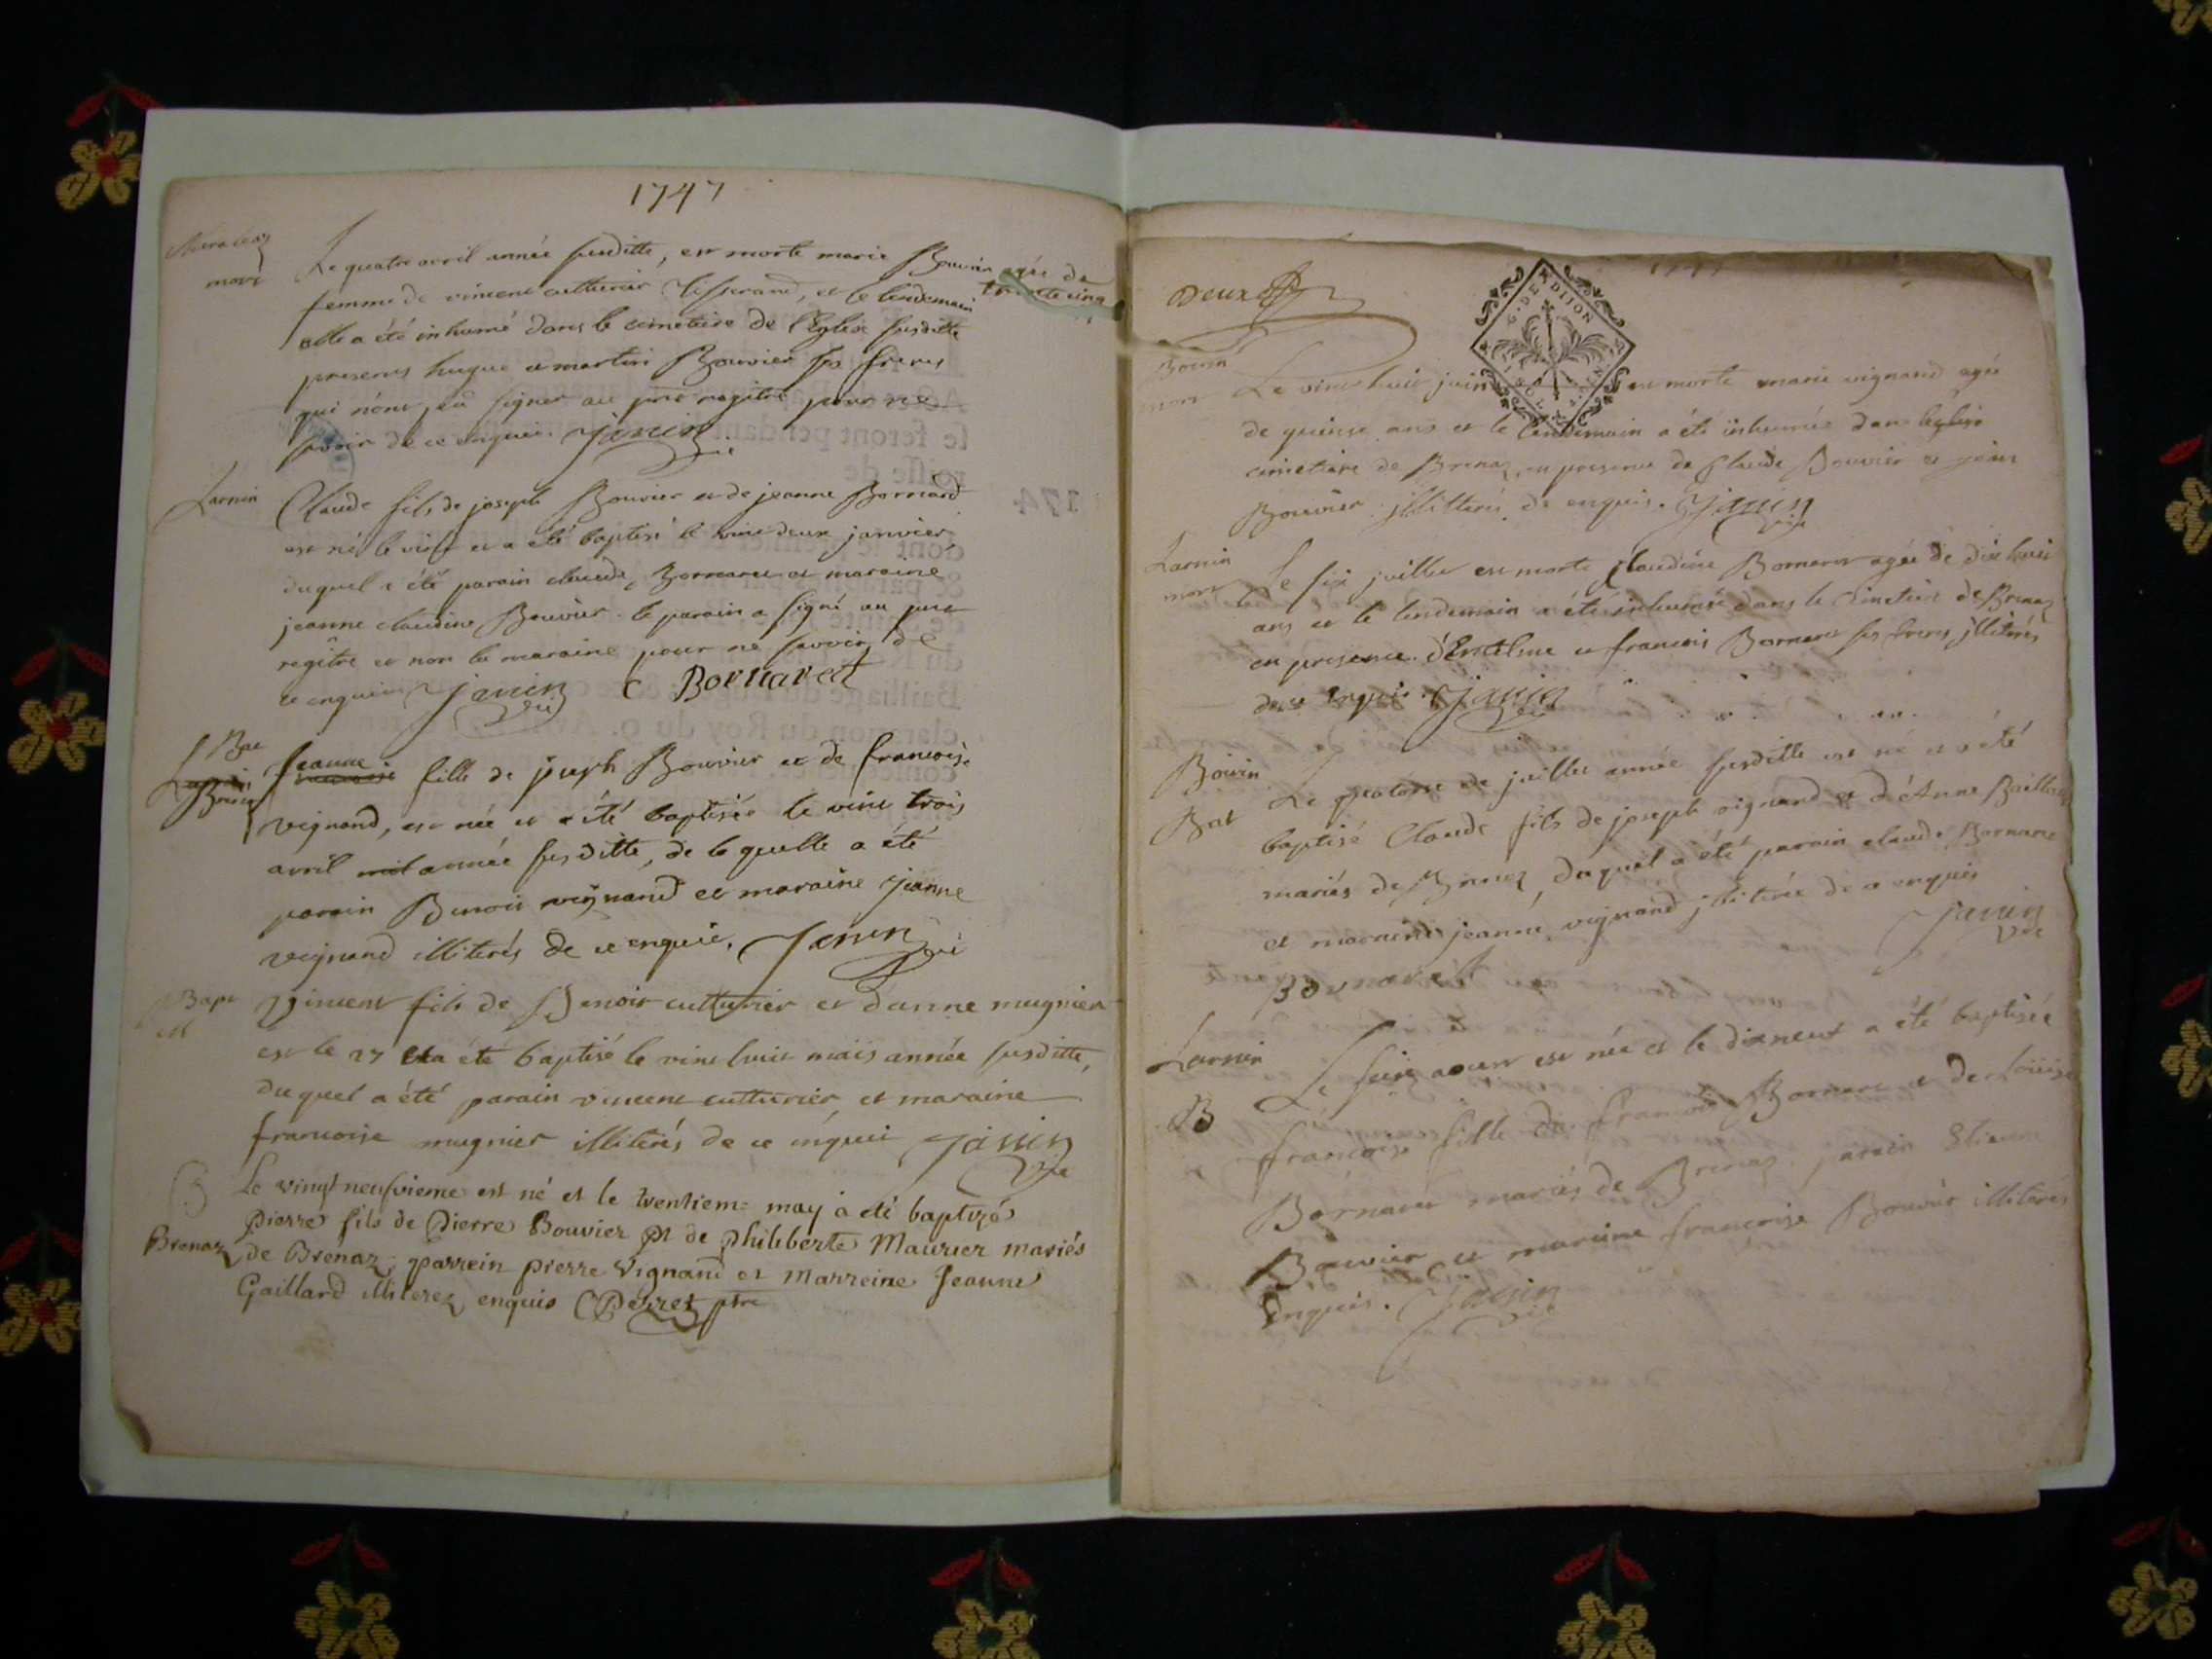 1747
mort
Le quatre avril année susditte, est morte marie Bouvier agée de
trente cinq
femme de vincent cutturier Tisserand, et le lendemain
elle a été inhumé dans le cimetiere de l'Eglise susditte
presens hugue et martin Bouvier ses freres
qui n'ont peu signer au pnt regitre pour ne
savoir de ce enquis. Janin
Larnin
Claude fils de joseph Bouvier et de jeanne Bornard
est né le vint et a été baptisé le vint deux janvier
duquel a été parain claude Bornaret et maraine
jeanne claudine Bouvier le parain a signé au pnt
regitre et non la maraine pour ne savoir de
ce enquis Janin C Bornaret
Bat
Brenaz
Jeanne
fille de joseph Bouvier et de francoise
vignand, est née et a été baptisée le vint trois
avril année susditte, de laquelle a été
parain Benoit vignand et maraine jeanne
vignand illiterés de ce enquis. Janin
Bapt
Vincent fils de Benoit cutturier et d'anne mugnier
est le 27 et a été baptisé le vint huit mais année susditte,
duquel a été parain vincent cutturier et maraine
francoise mugnier illiterés de ce enquis Janin
B
Le vingt neufvieme est né et le trentiem= may à eté baptizé
Pierre fils de Pierre Bouvier et de philiberte Maurier mariés
Brenaz
de Brenaz, parrein pierre Vignand et Marreine Jeanne
Gaillard illiterez enquis Perret ptre
Deux
G. DE DIJON
Boüin
mort
Le vint huit juin est morte marie vignand agée
de quinse ans et le lendemain a été inhumée dans
cimetiere de Brenaz en presence de Claude Bouvier et
Bouvier illitterés de enquis. Janin
Larnin
mort
Le six juillet est morte Claudine Bornaret agée de dix huit
ans et le lendemain a été inhumée dans le Cimetiere de Brenaz
en presence d'Entelme et francois Bornaret ses freres illiterés
de ce enquis. Janin
Boüin
Bat
Le quatorse de juillet année susditte est né et a été
baptisé Claude fils de joseph vignand et d'Anne Baillard
mariés de Brenaz, duquel a été parain claude Bornaret
et maraine jeanne vignand illiterée de ce enquis
Janin
Bornaret
Larnin
Le seize aoust est née et le dixneuf a été baptisée
B
francoise fille de francois Bornaret et de Loüise
Bornaret mariés de Brenaz. parain Etienne
Bouvier et maraine françoise Bouvier illiterés
Enquis. Janin